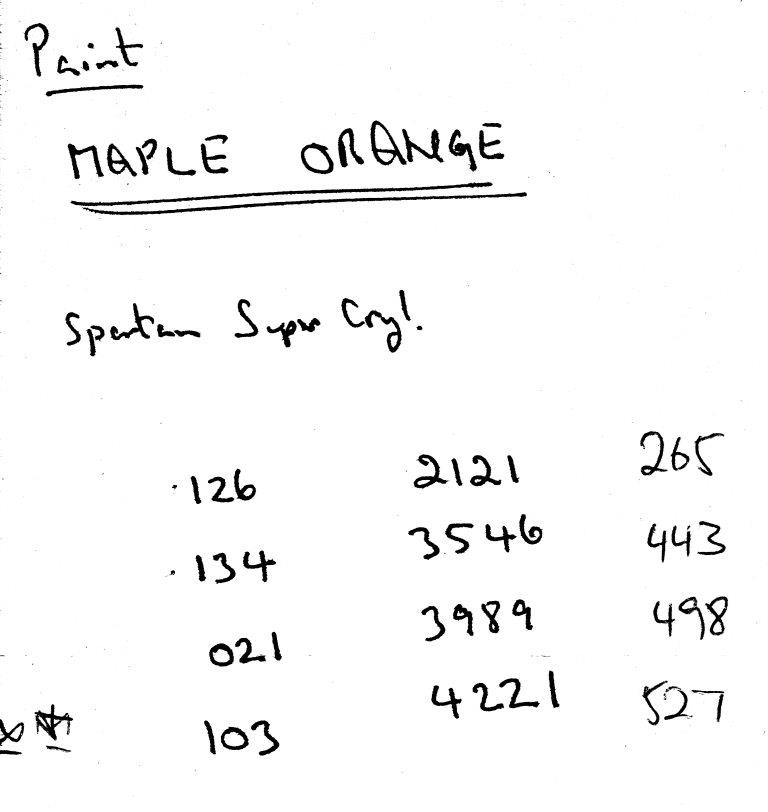 Paint
MAPLE ORANGE
Spartan Super Cryl.
.126 2121 265
.134 3546 443
021 3989 498
103 4221 527